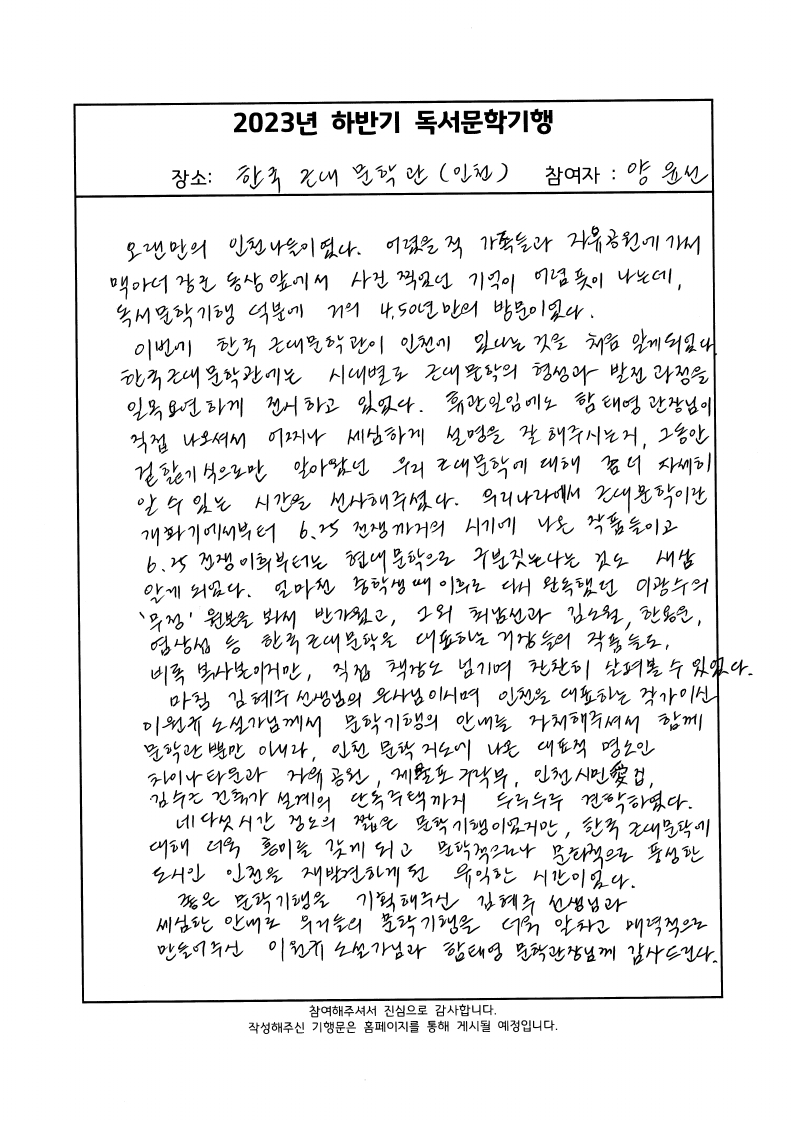 2023년 하반기 독서문학기행
장소: 한국 근대 문학관 (인천) 참여자 : 양윤선
오랜만의 인천나들이였다. 어렸을 적 가족들과 자유공원에 가서
맥아더 장군 동상 앞에서 사진 찍었던 기억이 어렴풋이 나는데,
독서문학기행 덕분에 거의 4,50년만의 방문이었다.
이번에 한국 근대문학관이 인천에 있다는 것을 처음 알게되었다.
한국근대문학관에는 시대별로 근대문학의 형성과 발전과정을
일목요연하게 전시하고 있었다. 휴관일임에도 함태영 관장님이
직접 나오셔서 어찌나 세심하게 설명을 잘 해주시는지, 그동안
겉핥기식으로만 알아왔던 우리 근대문학에 대해 좀더 자세히
알 수 있는 시간을 선사해주셨다. 우리나라에서 근대문학이란
개화기에서부터 6.25 전쟁까지의 시기에 나온 작품들이고
6.25 전쟁이후부터는 현대문학으로 구분짓는다는 것도 새삼
알게 되었다. 얼마전 중학생때 이후로 다시 완독했던 이광수의
'무정' 원본을 봐서 반가웠고, 그외 최남선과 김소월, 한용운,
염상섭 등 한국근대문학을 대표하는 거장들의 작품들도,
비록 복사본이지만, 직접 책장도 넘기며 찬찬히 살펴볼 수 있었다.
마침 김혜주 선생님의 은사님이시며 인천을 대표하는 작가이신
이원규 소설가님께서 문학기행의 안내를 자처해주셔서 함께
문학관뿐만 아니라, 인천 문학지도에 나온 대표적 명소인
차이나타운과 자유공원, 제물포구락부, 인천시민愛집,
김수근 건축가 설계의 단독주택까지 두루두루 견학하였다.
네다섯시간 정도의 짧은 문학기행이었지만, 한국 근대문학에
대해 더욱 흥미를 갖게 되고 문학적으로나 문화적으로 풍성한
도시인 인천을 재발견하게된 유익한 시간이었다.
좋은 문학기행을 기획해주신 김혜주 선생님과
세심한 안내로 우리들의 문학기행을 더욱 알차고 매력적으로
만들어주신 이원규 소설가님과 함태영 문학관장님께 감사드린다.
참여해주셔서 진심으로 감사합니다.
작성해주신 기행문은 홈페이지를 통해 게시될 예정입니다.